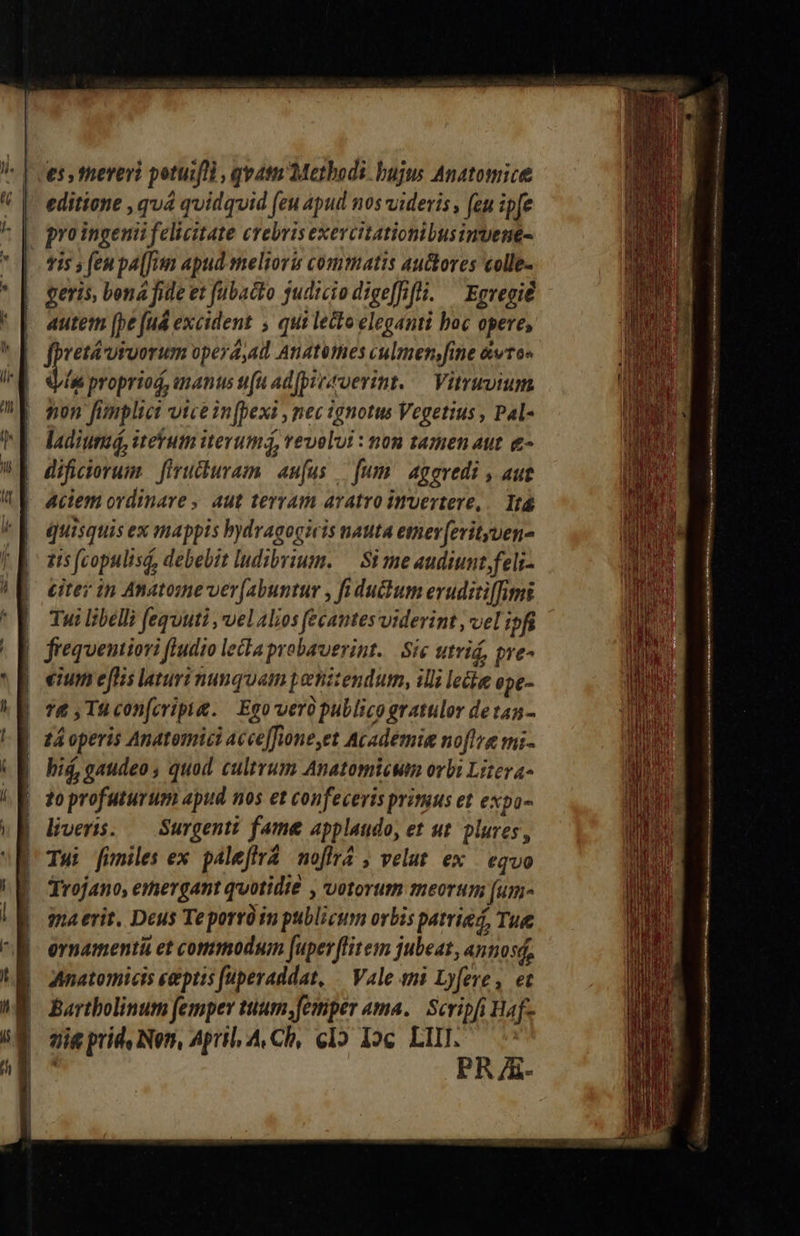 es, mereri potuisti, qvam Methodi hujus Anatomicæ
editione, qvâ qvidqvid seu apud nos videris, seu ipse
pro ingenii felicitate crebris exercitationibus invene-
ris; seu passim apud melioris commatis auctores colle-
geris, bonâ fide et subacto judicio digessisti. Egregiè
autem spe suâ excident, qui lecto eleganti hoc opere,
spretâ vivorum operâ, ad Anatomes culmen, sine ἀυτο-
ψίᾳ propriaq́; manus usu adspiraverint. Vitruvium
non simplici vice inspexi, nec ignotus Vegetius, Pal-
ladiumq́; iterum iterumq́; revolvi: non tamen aut æ-
dificiorum structuram ausus sum aggredi, aut
aciem ordinare, aut terram aratro invertere. Itâ
quisquis ex mappis hydragogicis nauta emerserit, ven-
tis scopulisq́; debebit ludibrium. Si me audiunt, feli-
citer in Anatome versabuntur, si ductum eruditissimi
Tui libelli seqvuti, vel alios secantes viderint, vel ipsi
freqventiori studio lecta probaverint. Sic utriq́; pre-
cium estis laturi nunquam pœnitendum, illi lectæ ope-
ræ, Tu conscriptæ. Ego verò publico gratulor de tan-
tâ operis Anatomici accessione, et Academiæ nostræ mi-
hiq́; gaudeo, quod cultrum Anatomicum orbi Litera-
to profuturum apud nos et confeceris primus et expo-
liveris. Surgenti famæ applaudo, et ut plures,
Tui similes ex palæstrâ nostrâ, velut ex equo
Trojano, emergant quotidiè, votorum meorum sum-
ma erit. Deus Te porrò in publicum orbis patriæq́; Tuæ
ornamentū et commodum superstitem jubeat, annosq́;
Anatomicis cœptis superaddat. Vale mi Lysere, et
Bartholinum semper tuum, semper ama. Scripsi Haf-
niæ prid. Non. April. A. Ch. cIɔ Iɔc LIII.
PRÆ-